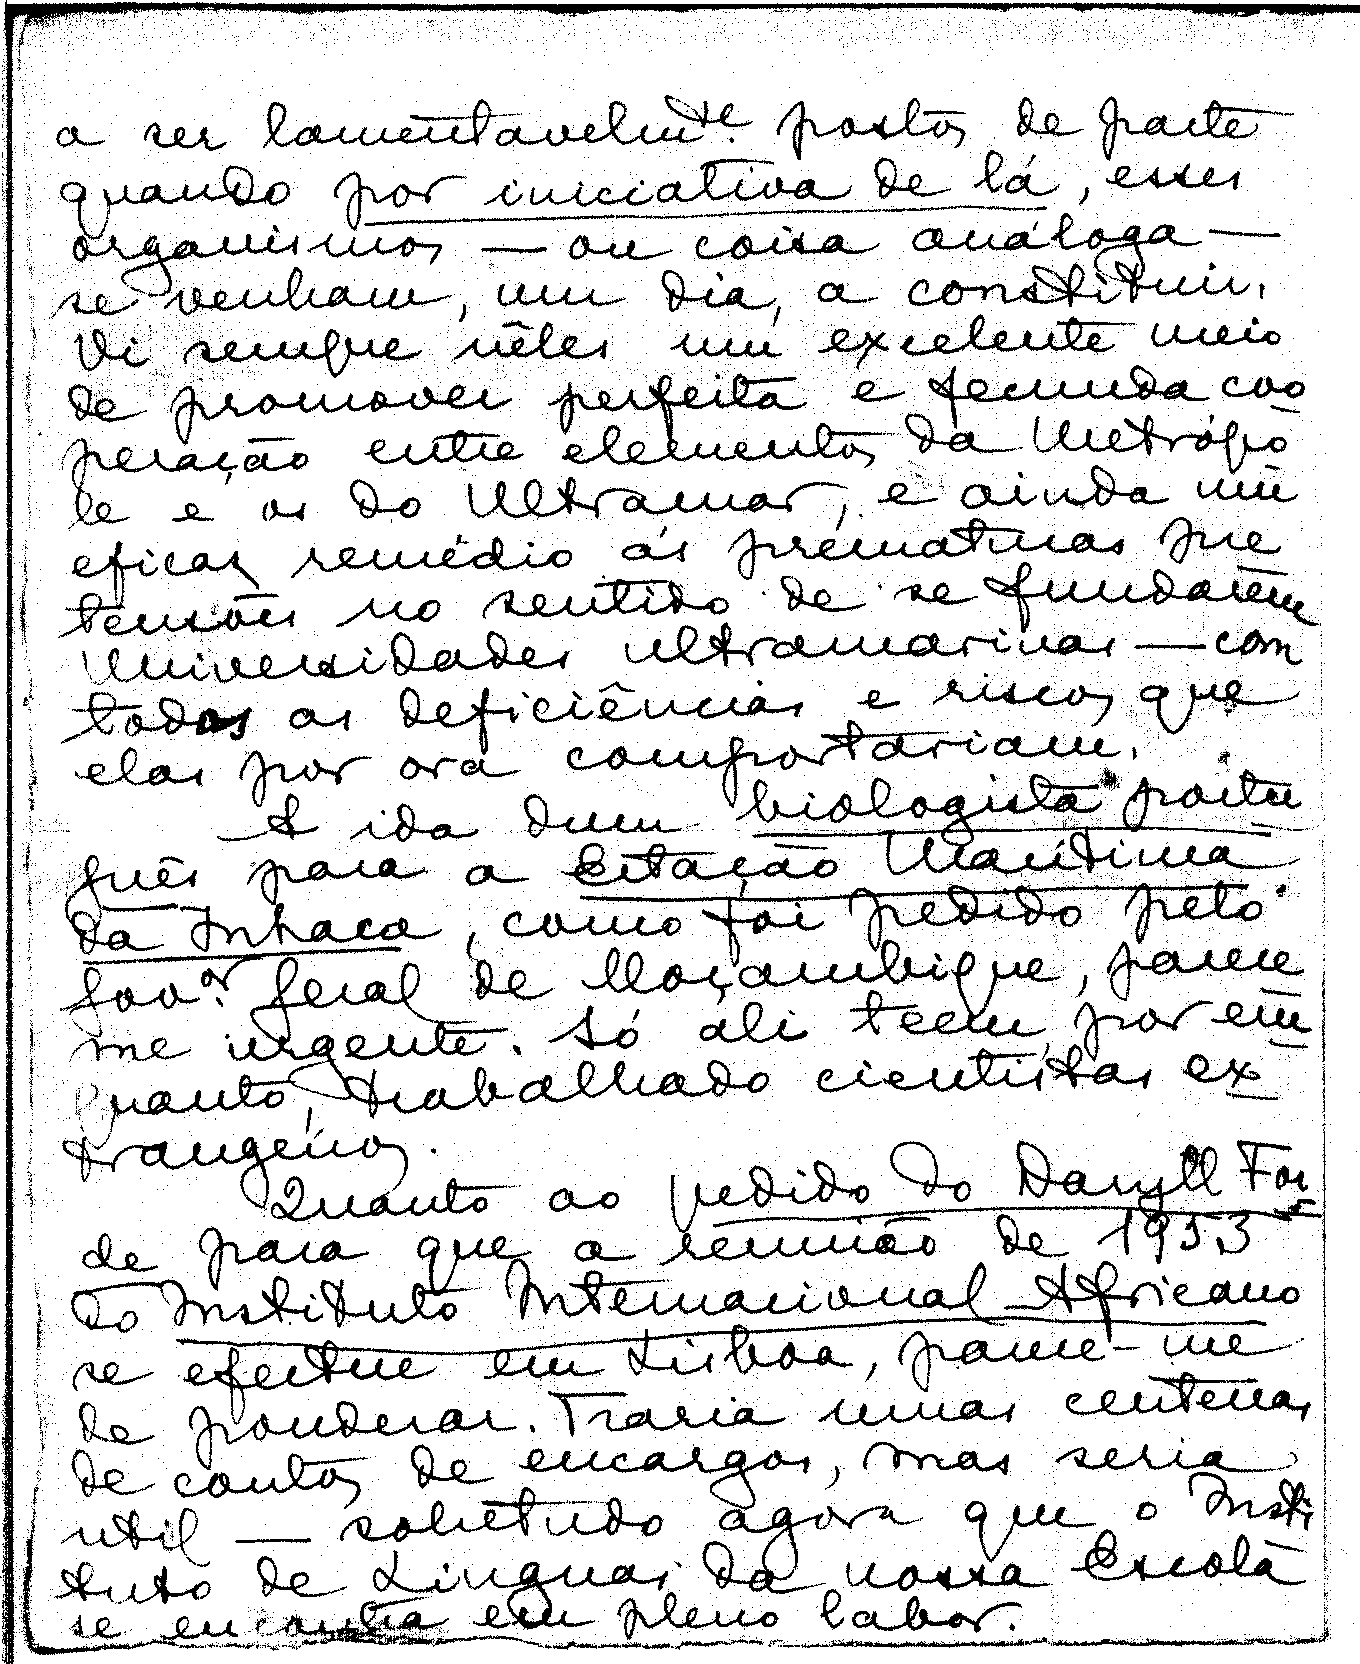 a ser lamentavelmte. postos de parte
quando por iniciativa de lá, esses
organismos — ou coisa análoga —
se venham, um dia, a constituir.
Vi sempre nêles um excelente meio
de promover perfeita e fecunda coo
peração entre elementos da Metrópo
le e os do Ultramar, e ainda um
eficaz remédio ás prematuras pre
tensões no sentido de se fundarem
Universidades ultramarinas — com
todas as deficiências e riscos que
elas por ora comportariam.
A ida dum biologista portu
guês para a Estação Marítima
da Inhaca, como foi pedido pelo
Govor. Geral de Moçambique, parece
me urgente. Só ali teem, por em
quanto, trabalhado cientistas ex
trangeiros.
Quanto ao pedido do Daryll For
de para que a reunião de 1953
do Instituto Internacional Africano
se efectue em Lisboa, parece-me
de ponderar. Traria umas centenas
de contos de encargos, mas seria
util — sobretudo agora que o Insti
tuto de Linguas da nossa Escola
se encontra em pleno labor.